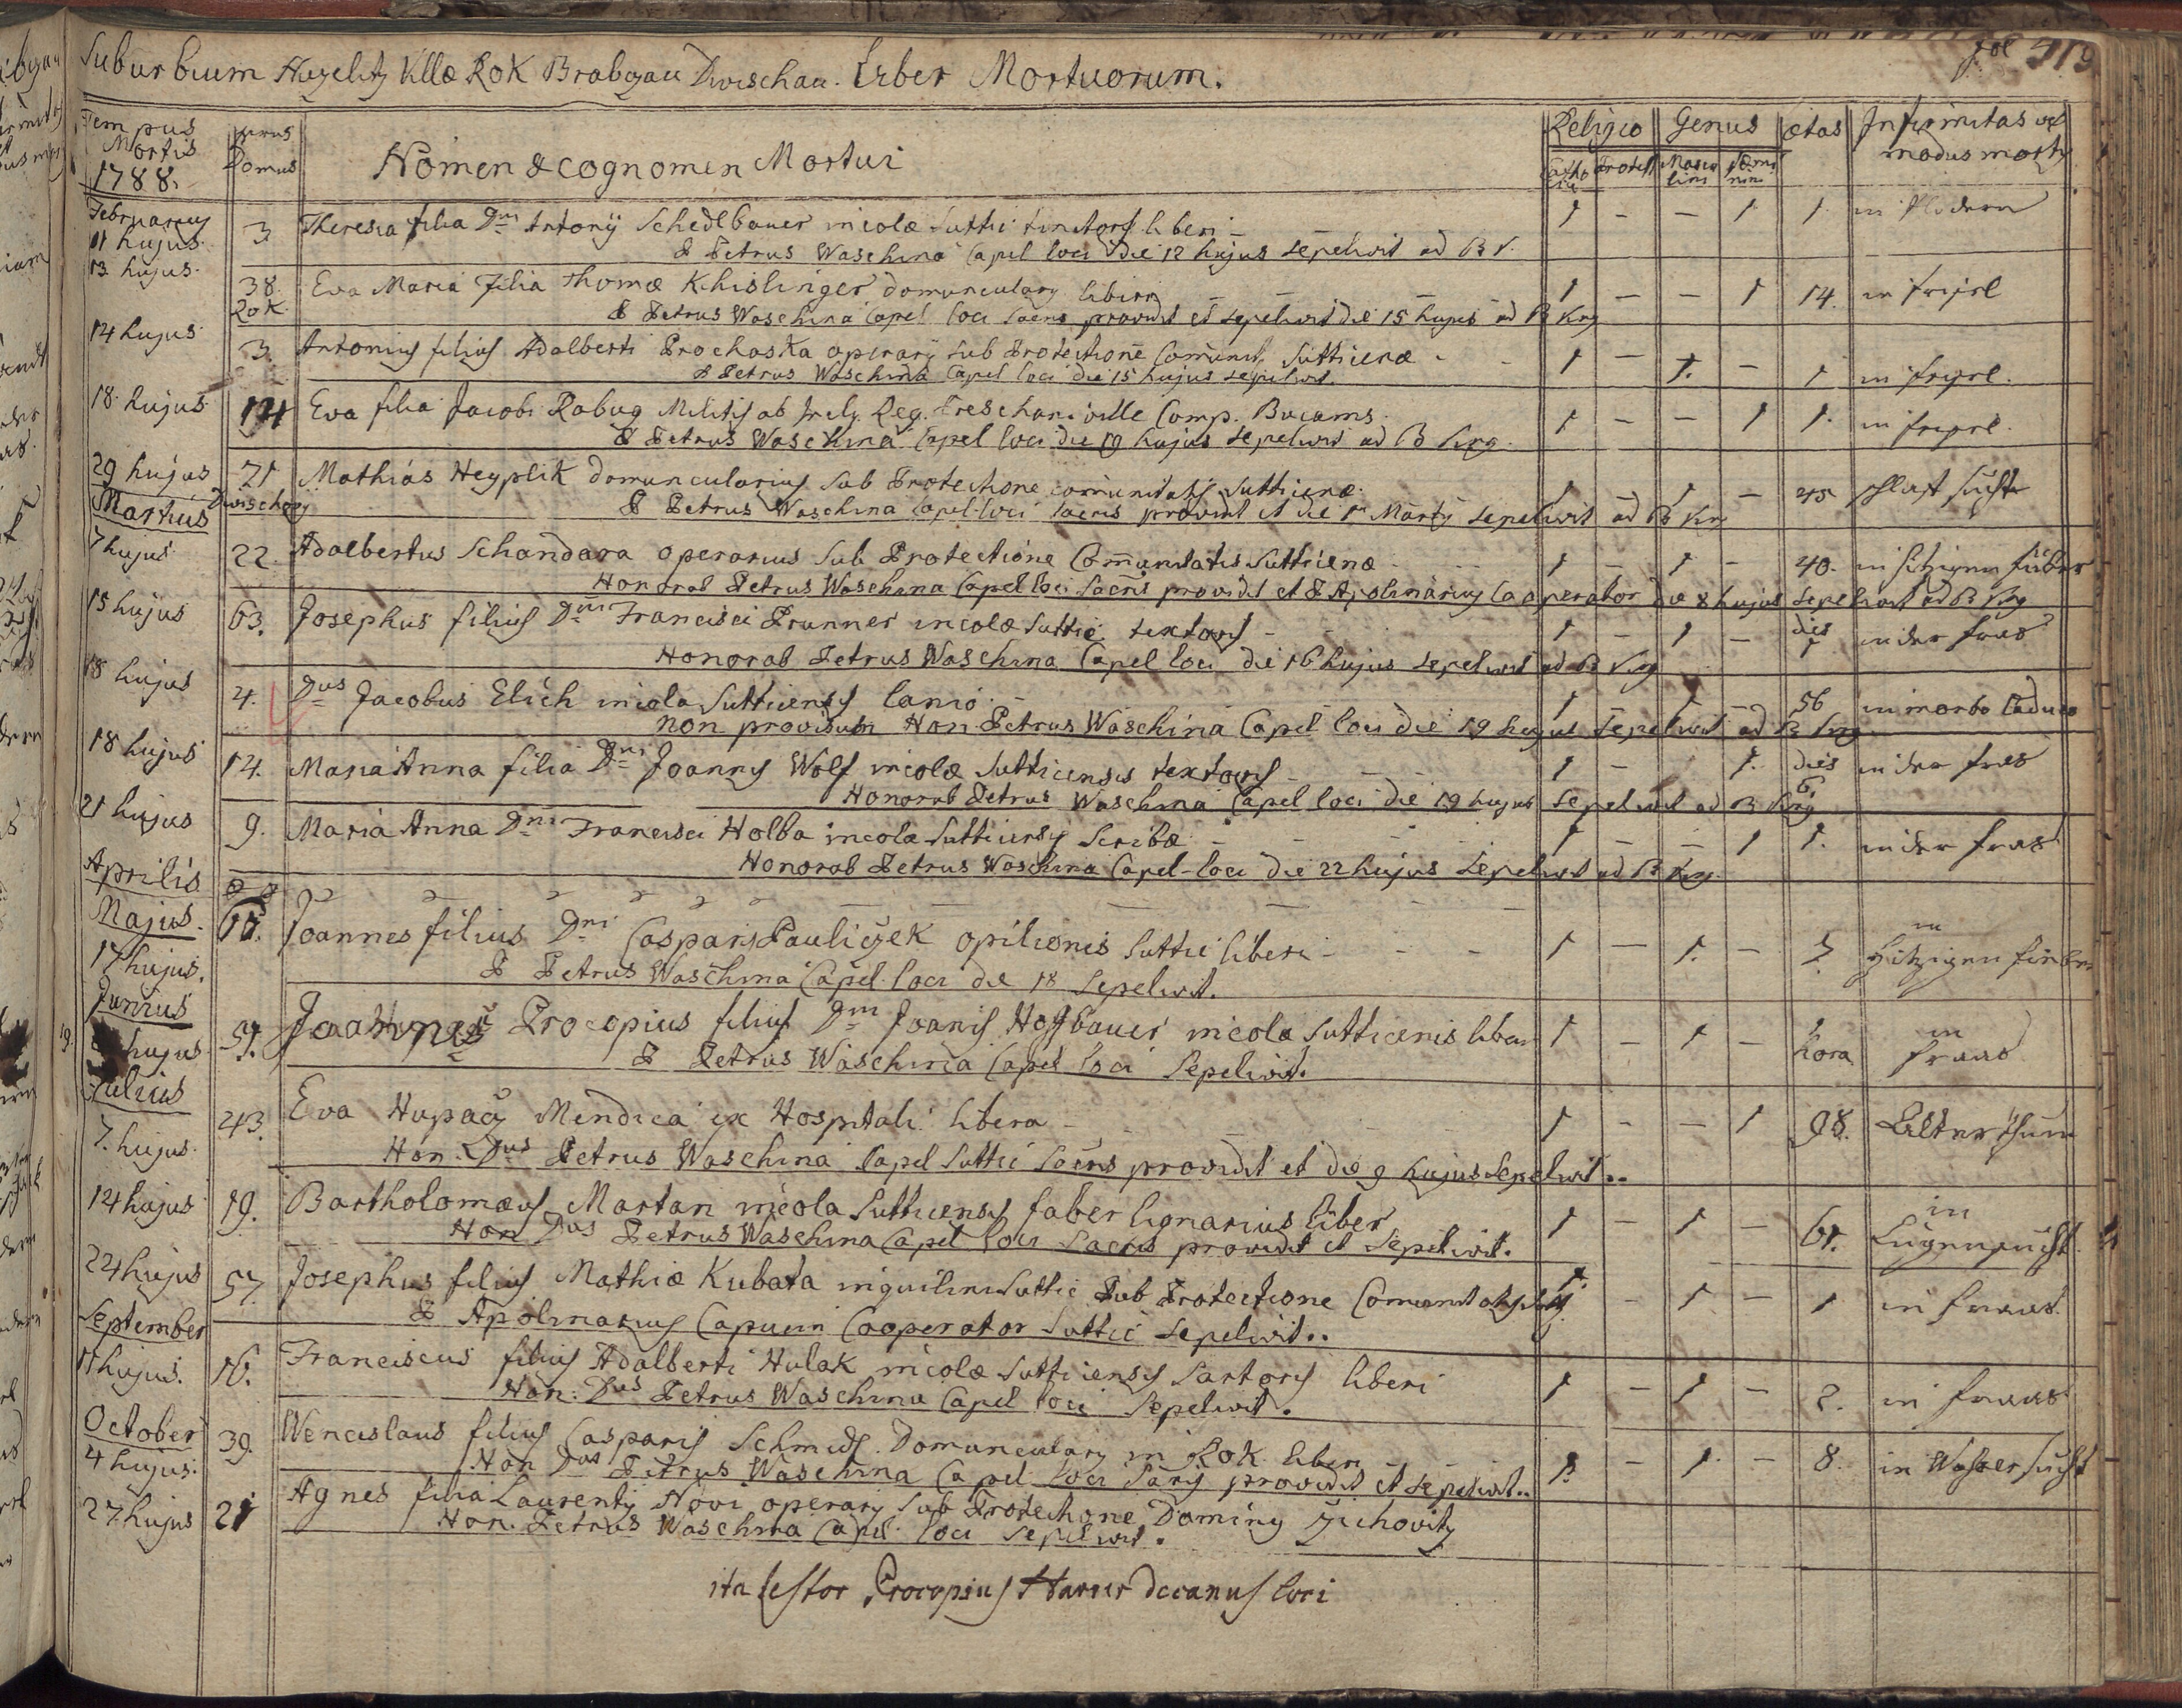 Suburbium Hugelitz Villæ Rok Brabczau Dwischau. Liber Mortuorum. fol 319
Tempus Mortis 1788. Nrus Domus Nomen & cognomen Mortui Religio Catholici Protest Genus Mascu lini Fœmi nini ætas Infirmitas vel modus mortis
Februarius
11 hujus. 3 Theresia filia Dni Antonÿ Schedlbauer incolæ Suttic tinctoris liberi 1 – – 1 1 in
P Petrus Waschina Capel loci die 12 hujus sepelivit ad B V.
13 hujus. 38. Rok. Eva Maria filia Thomæ Khislinger domuncularÿ liberi 1 – – 1 14. in freysl
P Petrus Waschina Capel loci Sacris providit et sepelivit die 15 hujus ad B Virg
14 hujus 3. Antonius filius Adalberti Prochaska operarÿ sub Protectione Comunit. Sutticenæ 1 – 1. – 1 in freysl.
P Petrus Waschina Capel loci die 15 hujus sepelivit.
18. hujus 14 Eva filia Jacobi Rabug Militis ab Inclÿ Reg. Preschani ville Comp. 1 – – 1 1. in freysl.
P Petrus Waschina Capel loci die 19 hujus sepelivit ad B Virg.
29 hujus 21 Dwischau Mathias Heyplik domuncularius sub Protectione comunitatis Sutticenæ 1 1 – 45 suchte
P Petrus Waschina Capel loci Sacris providit et die 1a Martÿ sepelivit ad B Vir
Martius
7 hujus 22. Adalbertus Schandara operarius sub Protectione Comunitatis Sutticenæ 1 – 1 – 40. in hitzigen fieber
Honorab Petrus Waschina Capel loci Sacris providit et P Apolinarius Cooperator die 8 hujus sepelivit ad B Virg
15 hujus 63. Josephus filius Dni Francisci Prunner incolæ Suttic textoris 1 – 1 – dies in der fras
Honorab Petrus Waschina Capel loci die 16 hujus sepelivit ad B Virg
18 hujus 4. Dnus Jacobus Elich incola Sutticensis lanio 1 – 1 – 56 in morbo caduco
non provisum Hon Petrus Waschina Capel loci die 19 hujus sepelivit ad B Virg
18 hujus 14. Maria Anna filia Dni Joannis Wolf incolæ Sutticensis textoris 1 – 1. dies 6. in der fras
Honorab Petrus Waschina Capel loci die 19 hujus sepelivit ad B Virg
21 hujus 9. Maria Anna Dni Francisci Holba incolæ Sutticensis Scribæ 1 – – 1 1. in der fras
Honorab Petrus Waschina Capel-loci die 22 hujus sepelivit ad B Virg.
Aprilis
Majus.
17 hujus. Joannes filius Dni Casparis Pauliczek opilionis Suttic liberi 1 – 1. – in hitzigen fieber
P Petrus Waschina Capel loci die 18 sepelivit.
Junius
hujus. Joannes Procopius filius Dni Joanis Hoffbauer incola Sutticenis liberi 1 – 1 – hora in fraas
P Petrus Waschina Capel loci Sepelivit.
Julius
7. hujus. 43. Eva Mendica ex Hospitali libera 1 – – 1 98. Alterthum
Hon. Dnus Petrus Waschina Capel Suttic Sacris providit et die 9 hujus sepelivit..
14 hujus 19. Bartholomæus Martan incola Sutticensis faber lignarius liber 1 – 1 – 61. in Lungensucht.
Hon Dnus Petrus Waschina Capel loci Sacris providit et Sepelivit.
22 hujus 57 Josephus filius Mathiæ Kubata inquilini Suttic sub Protectione Comunitatis 1. – 1 – 1 in fraas.
P Apolinarius Capucin Cooperator Suttic sepelivit..
September
11 hujus. 16. Franciscus filius Adalberti Hulak incolæ Sutticensis Sartoris liberi 1 – 1 – 2. in fraas
Hon: Dnus Petrus Waschina Capel loci Sepelivit.
October
4 hujus. 39. Wenceslaus filius Casparis Schmid. Domuncularÿ in Rok liberi 1. – 1. – 8. in Wassersucht
Hon Dnus Petrus Waschina Capel loci Sacris providit et sepelivit..
27 hujus 21 Agnes filia Laurentÿ Novi operarÿ sub Protectione Dominÿ Žichovitz
Hon. Petrus Waschina Capel. loci sepelivit.
ita testor Procopius Harrer Decanus loci